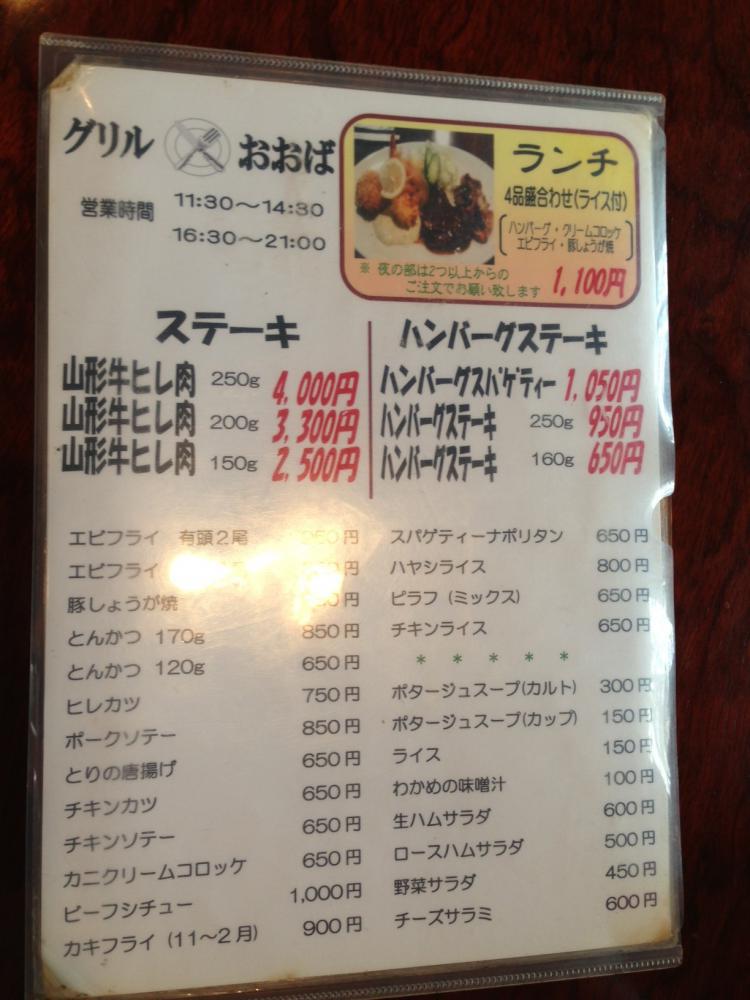 グリル おおば
営業時間 11:30～14:30
16:30～21:00
ランチ
4品盛合わせ(ライス付)
ハンバーグ・クリームコロッケ
エビフライ・豚しょうが焼
※ 夜の部は2つ以上からの
ご注文でお願い致します 1,100円
ステーキ
山形牛ヒレ肉 250g 4,000円
山形牛ヒレ肉 200g 3,300円
山形牛ヒレ肉 150g 2,500円
ハンバーグステーキ
ハンバーグスパゲティー 1,050円
ハンバーグステーキ 250g 950円
ハンバーグステーキ 160g 650円
エビフライ 有頭2尾 円
エビフライ 円
豚しょうが焼 円
とんかつ 170g 850円
とんかつ 120g 650円
ヒレカツ 750円
ポークソテー 850円
とりの唐揚げ 650円
チキンカツ 650円
チキンソテー 650円
カニクリームコロッケ 650円
ビーフシチュー 1,000円
カキフライ (11～2月) 900円
スパゲティーナポリタン 650円
ハヤシライス 800円
ピラフ (ミックス) 650円
チキンライス 650円
* * * * *
ポタージュスープ(カルト) 300円
ポタージュスープ(カップ) 150円
ライス 150円
わかめの味噌汁 100円
生ハムサラダ 600円
ロースハムサラダ 500円
野菜サラダ 450円
チーズサラミ 600円